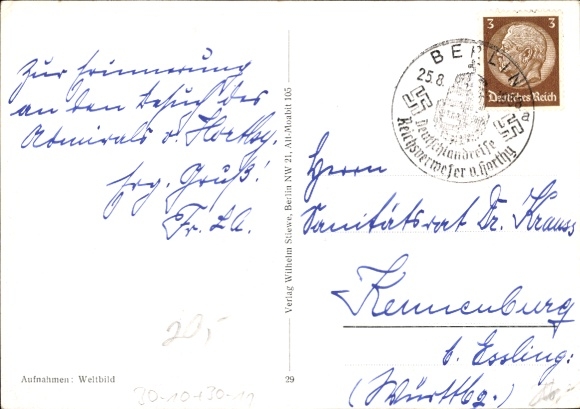 Zur Erinnerung
an den Besuch des
Admirals v. Horthy.
Erg. Gruß!
Fr. LA.
Aufnahmen: Weltbild
29
Verlag Wilhelm Stiewe, Berlin NW 21, Alt-Moabit 105
3 3
Deutsches Reich
BERLIN
25.8.
a
Deutschlandreise
Reichsverweser v. Horthy
Herrn
Sanitätsrat Dr. Krauss
Kennenburg
b. Essling:
(Württbg.)
20,-
30-10+30-10